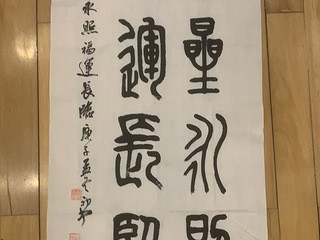 星永照
運長臨
永照福運長臨庚子孟冬